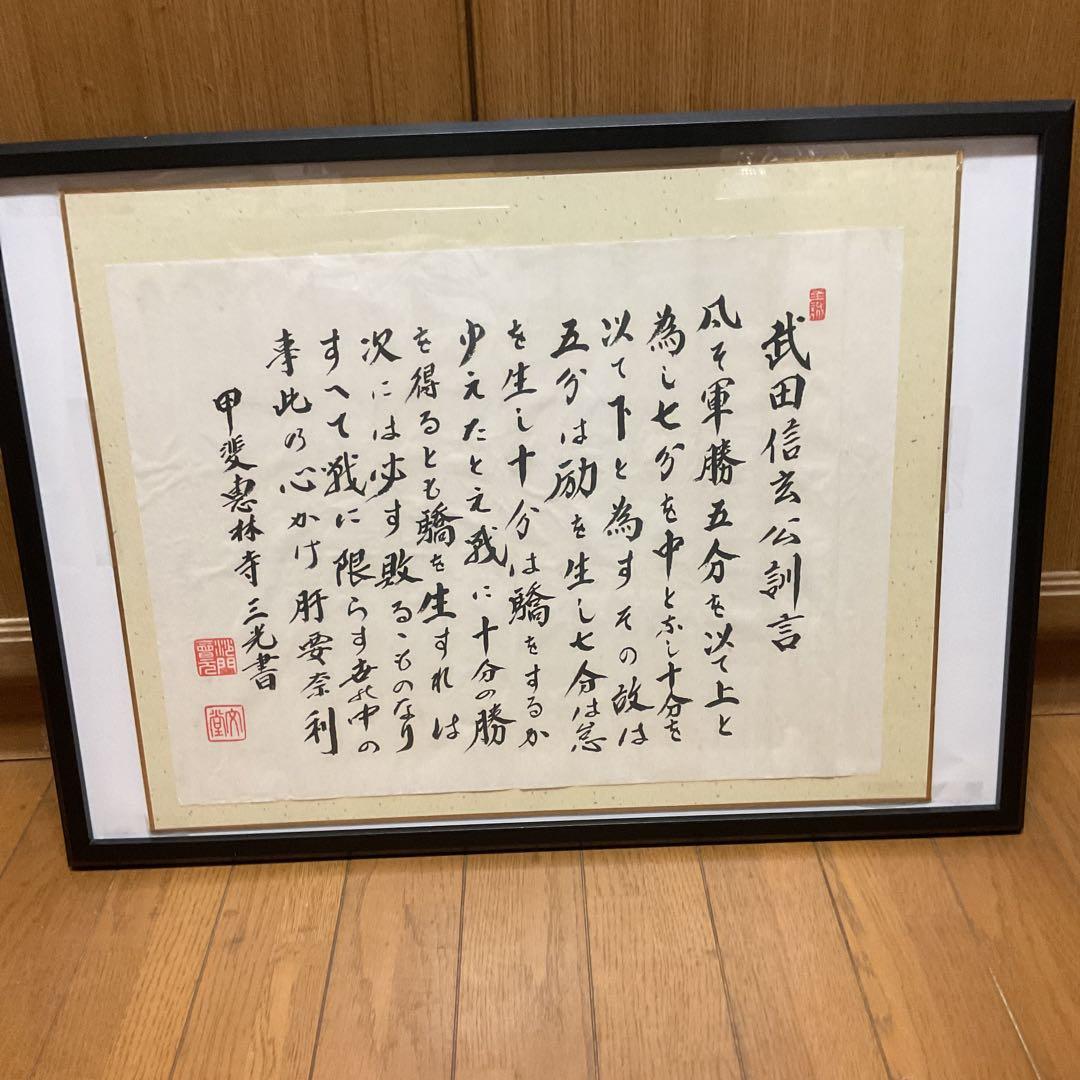 武田信玄公訓言
凡そ軍勝五分を以て上と
為し七分を中となし十分を
以て下と為すその故は
五分は励を生し七分は怠
を生し十分は驕をするか
ゆえたとえ戦に十分の勝
を得るとも驕を生すれは
次には必す敗るゝものなり
すへて戦に限らす世の中の
事此の心かけ肝要奈利
甲斐惠林寺三光書